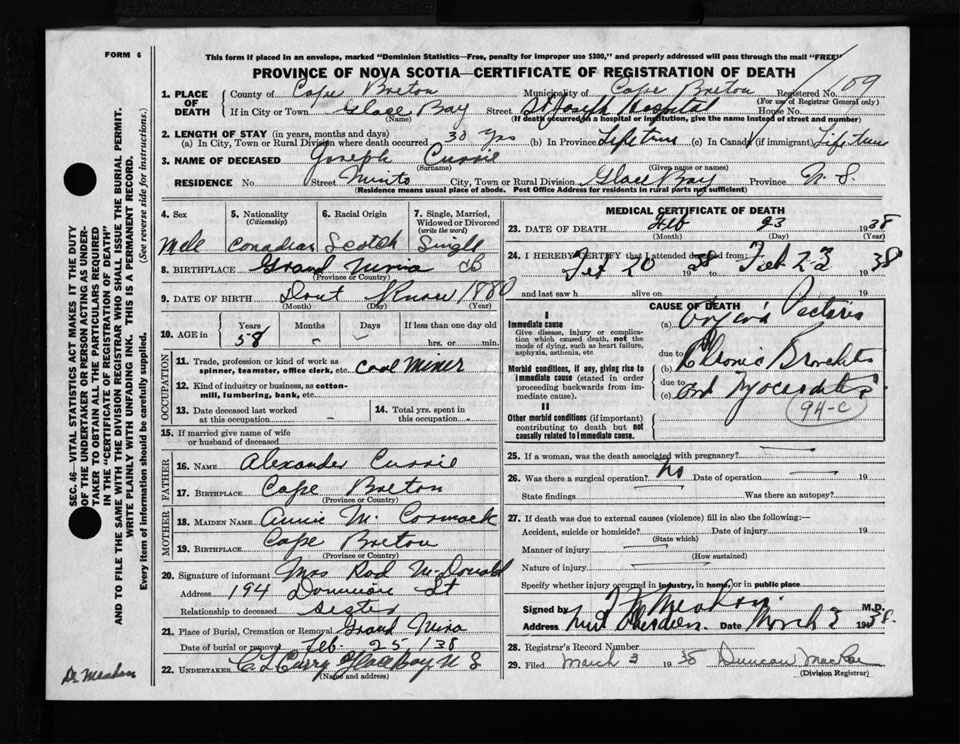 FORM 6
This form if placed in an envelope, marked "Dominion Statistics—Free, penalty for improper use $300," and properly addressed will pass through the mail "FREE"
PROVINCE OF NOVA SCOTIA—CERTIFICATE OF REGISTRATION OF DEATH
1. PLACE OF DEATH
County of Cape Breton Municipality of Cape Breton Registered No. 109
(For use of Registrar General only)
If in City or Town Glace Bay Street St Joseph Hospital House No.
(Name) (If death occurred in a hospital or institution, give the name instead of street and number)
2. LENGTH OF STAY (in years, months and days)
(a) In City, Town or Rural Division where death occurred 30 yrs (b) In Province Lifetime (c) In Canada (if immigrant) Lifetime
3. NAME OF DECEASED Joseph Currie
(Surname) (Given name or names)
RESIDENCE No. Street Minto City, Town or Rural Division Glace Bay Province N.S.
(Residence means usual place of abode. Post Office Address for residents in rural parts not sufficient)
4. Sex 5. Nationality 6. Racial Origin 7. Single, Married,
(Citizenship) Widowed or Divorced
(write the word)
Male Canadian Scotch Single
8. BIRTHPLACE Grand Mira CB
(Province or Country)
9. DATE OF BIRTH Dont Know 1880
(Month) (Day) (Year)
10. AGE in Years Months Days If less than one day old
58 hrs. or min.
OCCUPATION
11. Trade, profession or kind of work as
spinner, teamster, office clerk, etc. Coal Miner
12. Kind of industry or business, as cotton-
mill, lumbering, bank, etc.
13. Date deceased last worked at this occupation
14. Total yrs. spent in this occupation
15. If married give name of wife
or husband of deceased
FATHER
16. NAME Alexander Currie
17. BIRTHPLACE Cape Breton
(Province or Country)
MOTHER
18. MAIDEN NAME Annie McCormack
19. BIRTHPLACE Cape Breton
(Province or Country)
20. Signature of informant Mrs Rod McDonald
Address 194 Dominion St
Relationship to deceased Sister
21. Place of Burial, Cremation or Removal Grand Mira
Date of burial or removal Feb. 25/38
22. UNDERTAKER Glace Bay N S
(Name and address)
MEDICAL CERTIFICATE OF DEATH
23. DATE OF DEATH Feb 23 1938
(Month) (Day) (Year)
24. I HEREBY CERTIFY that I attended deceased from:
Feb 20 1938 to Feb 23 1938
and last saw h alive on 19
CAUSE OF DEATH
I
Immediate cause (a) Angina Pectoris
Give disease, injury or complication which caused death, not the mode of dying, such as heart failure, asphyxia, asthenia, etc
due to
(b) Chronic Bronchitis
Morbid conditions, if any, giving rise to immediate cause (stated in order proceeding backwards from immediate cause).
due to
(c) and Myocarditis
94-c
II
Other morbid conditions (if important) contributing to death but not causally related to immediate cause.
25. If a woman, was the death associated with pregnancy?
26. Was there a surgical operation? No Date of operation 19
State findings Was there an autopsy?
27. If death was due to external causes (violence) fill in also the following:—
Accident, suicide or homicide? Date of injury 19
(State which)
Manner of injury
(How sustained)
Nature of injury
Specify whether injury occurred in industry, in home, or in public place
Signed by Meahan M.D.
Address New Aberdeen Date March 3 1938
28. Registrar's Record Number
29. Filed March 3 1938 Duncan MacRae
(Division Registrar)
SEC. 46—VITAL STATISTICS ACT MAKES IT THE DUTY
OF THE UNDERTAKER OR PERSON ACTING AS UNDER-
TAKER TO OBTAIN ALL THE PARTICULARS REQUIRED
IN THE "CERTIFICATE OF REGISTRATION OF DEATH"
AND TO FILE THE SAME WITH THE DIVISION REGISTRAR WHO SHALL ISSUE THE BURIAL PERMIT.
WRITE PLAINLY WITH UNFADING INK. THIS IS A PERMANENT RECORD.
Every item of information should be carefully supplied. (See reverse side for instructions.)
Dr Meahan